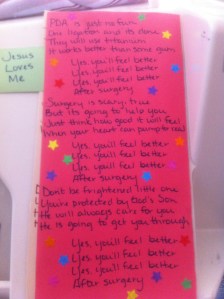 Jesus
Loves
Me
PDA is just no fun
One ligation and its done
They will use titanium
It works better than some gum
Yes, you'll feel better
Yes, you'll feel better
Yes, you'll feel better
After surgery
Surgery is scary, true
But its going to help you
Just think how good it will feel
When your heart can pump for real
Yes, you'll feel better
Yes, you'll feel better
Yes, you'll feel better
After surgery
Don't be frightened little one
You're protected by God's Son
He will always care for you
He is going to get you through
Yes, you'll feel better
Yes, you'll feel better
Yes, you'll feel better
After surgery